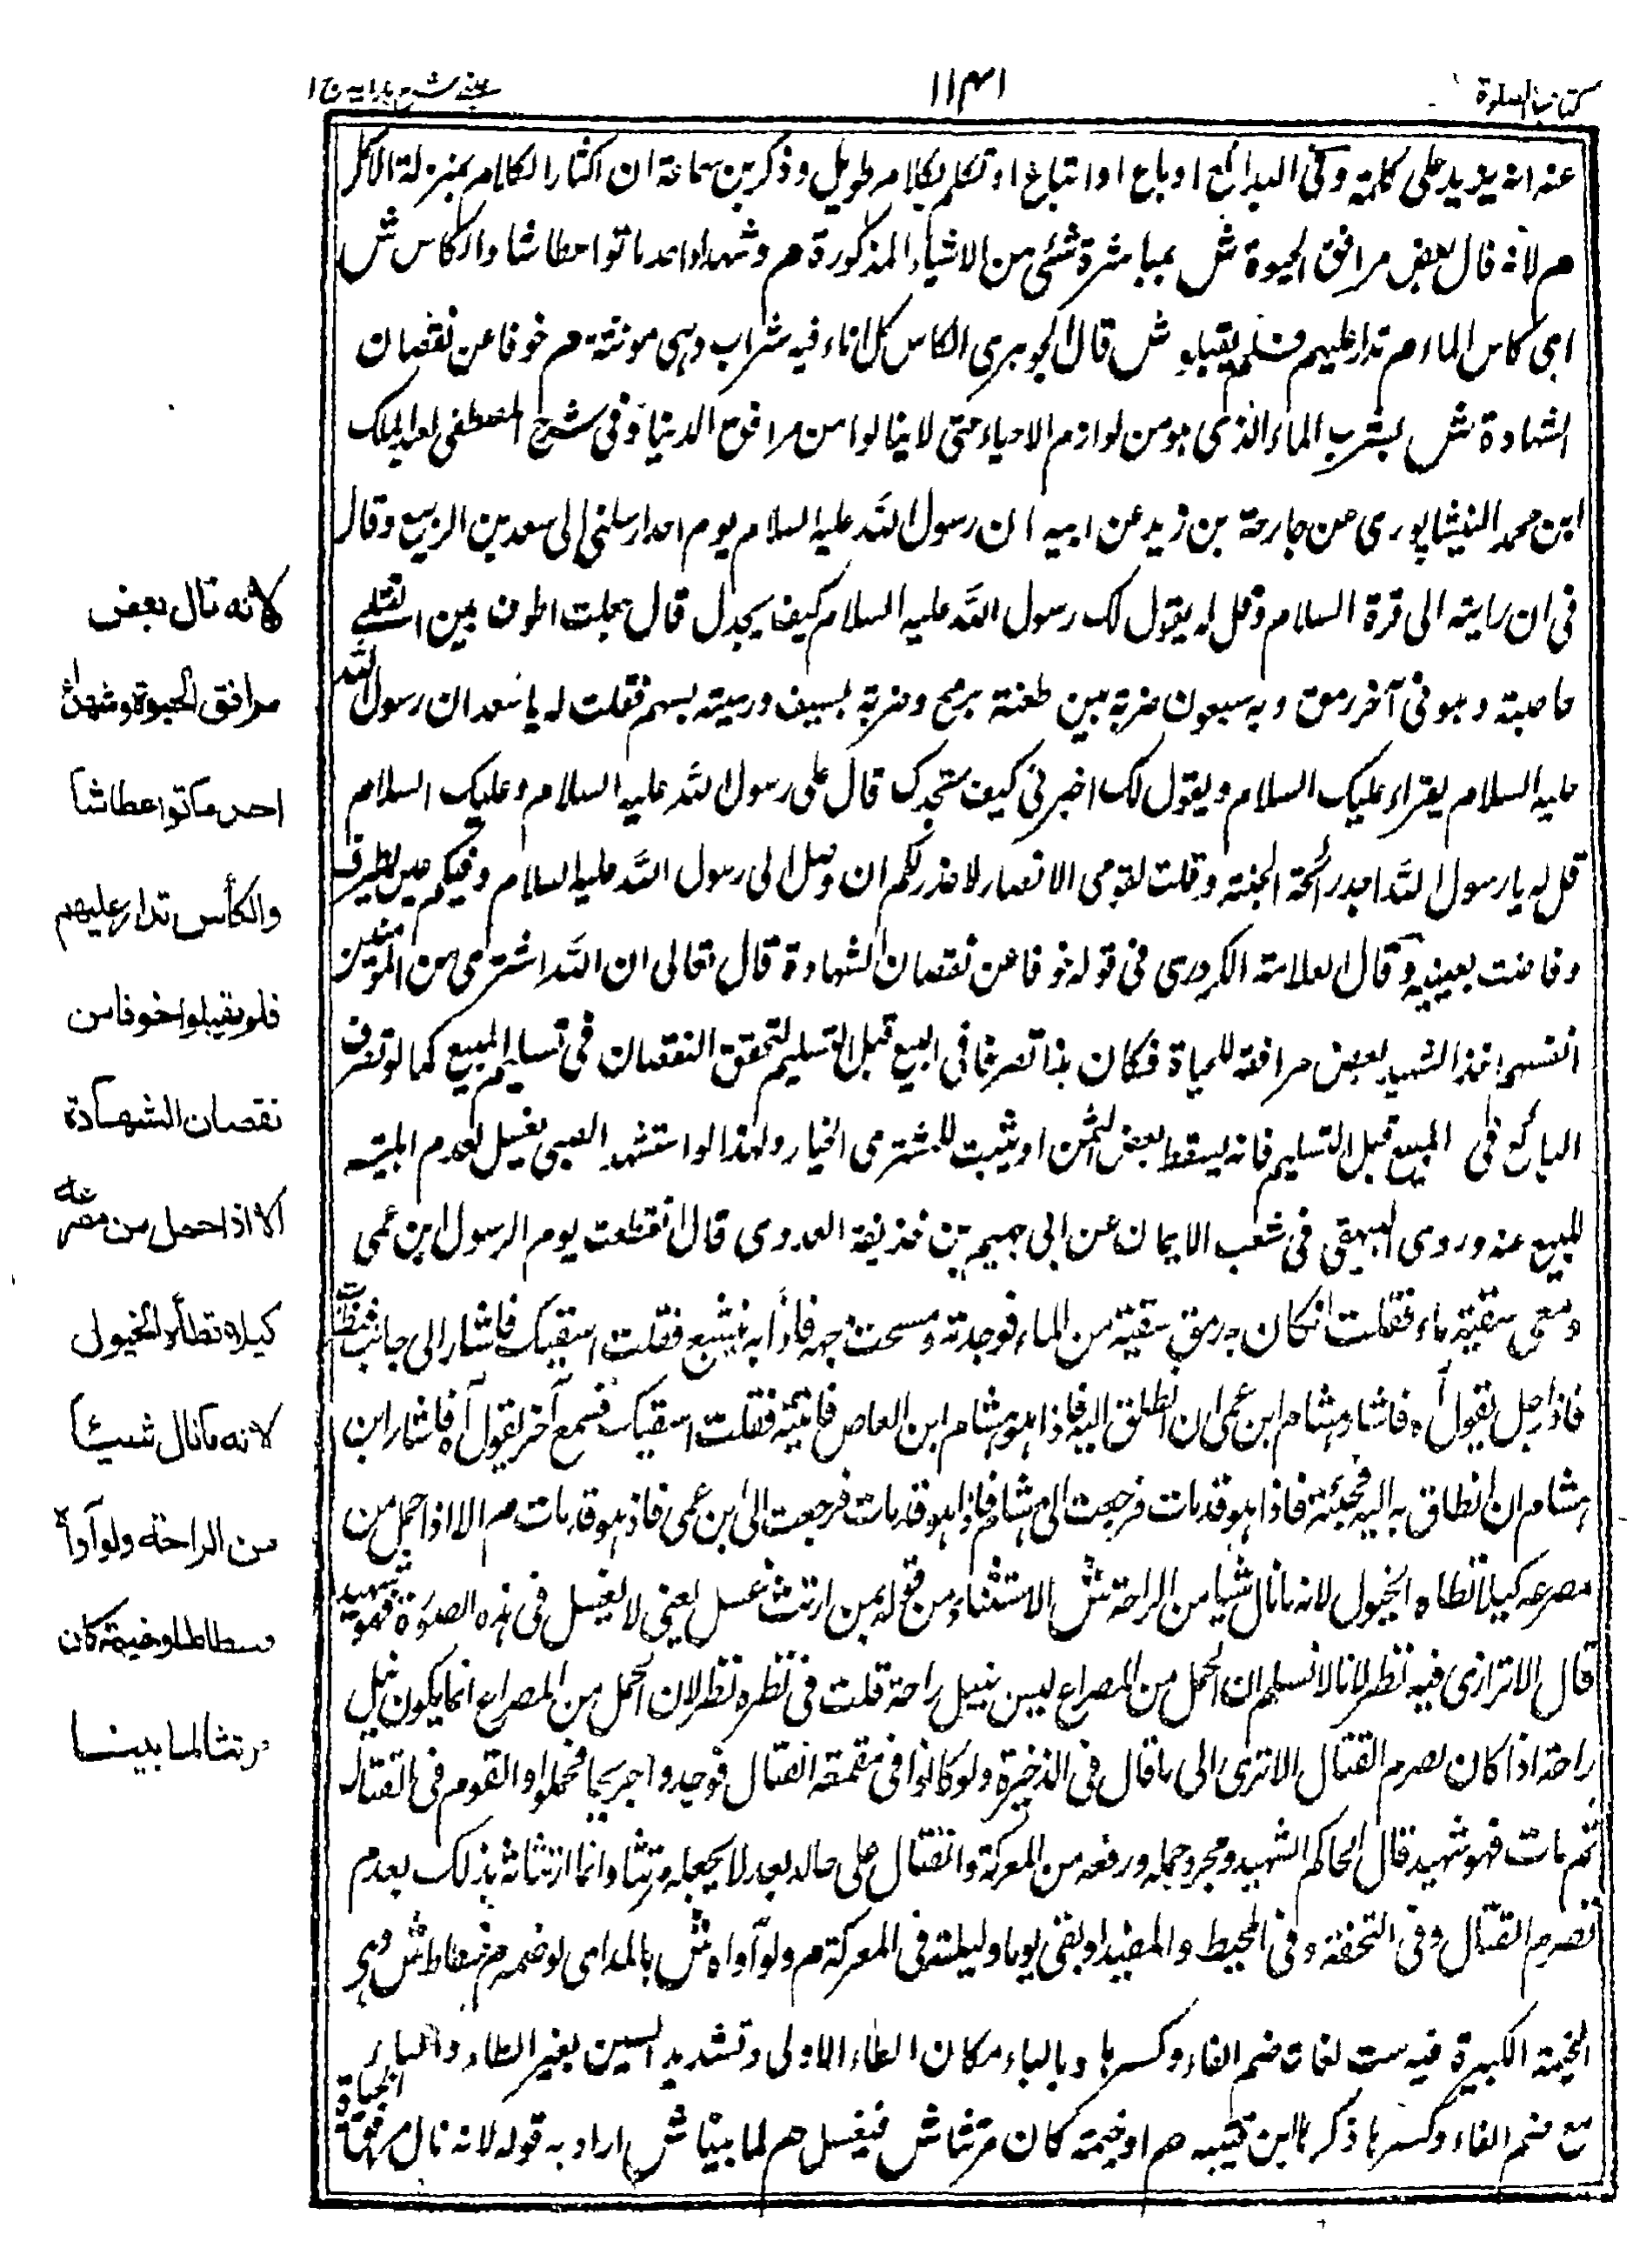 كتاب الصلوة
١١٣١
عينى شرح هدايه ج ١
عنه انه يزيد على كلمة وفى البدائع او باع او ابتاع او تكلم بكلام طويل وذكر بن سماعة ان اكثار الكلام بمنزلة الاكل
م لانه قال بعض مرافق الحيوة ش بمباشرة شئى من الاشياء المذكورة م وشهداء احد ماتوا عطاشا والكاس ش
اى كاس الماء م تدار عليهم فلم يقبلو ش قال الجوهرى الكاس كل اناء فيه شراب وهى مونثة م خوفا عن نقصان
الشهادة ش بشرب الماء الذى هو من لوازم الاحياء حتى لا ينالوا من مرافق الدنيا وفى شرح المصطفى لعبد الملك
ابن محمد النيشاپورى عن جارحة بن زيد عن ابيه ان رسول الله عليه السلام يوم احد ارسلنى الى سعد بن الربيع وقال
فى ان رايته الى قرة السلام وقل له يقول لك رسول الله عليه السلام كيف يجدل قال بجلت اطوف بين القتلى
فاصبته وهو فى آخر رمق وبه سبعون ضربة بين طعنة برمح وضربة بسيف ورمية بسهم فقلت له يا سعد ان رسول الله
عليه السلام يقراء عليك السلام ويقول لك اخبرنى كيف ستجدك قال على رسول الله عليه السلام وعليك السلام
قل له يا رسول الله اجد رائحة الجنة وقلت لقومى الانصار لا عذر لكم ان وصل الى رسول الله عليه السلام وفيكم عين تطرف
وفاضت بعينيه وقال العلامة الكردرى فى قوله خوفا عن نقصان الشهادة قال تعالى ان الله اشترى من المؤمنين
انفسهم اخذ الشهيد بعض مرافقه للحياة فكان هذا تصرفا فى البيع قبل التسليم لتحقق النقصان فى تسليم المبيع كما لو تصرف
البائع فى المبيع قبل التسليم فانه يسقط بعض الثمن او يثبت للمشترى الخيار ولهذا لو استشهد الصبى يغسل لعدم اهليته
للبيع عنه وروى البيهقى فى شعب الايمان عن ابى جهيم بن حذيفة العدوى قال انقطعت يوم الرسول ابن عمى
ومعى سقية ماء فقلت ان كان به رمق سقية من الماء فوجدته ومسحت وجهه فاذا به ينشبع فقلت اسقيك فاشار الى جانب
فاذا رجل يقول آه فاشار هشام ابن عمى ان انطلق اليه فاذا هو هشام ابن العاص فاتيته فقلت اسقيك فسمع آخر يقول آه فاشار ابن
هشام ان انطلق به اليه فجئته فاذا هو قد مات فرجعت الى هشام فاذا هو قد مات فرجعت الى ابن عمى فاذا هو قد مات م الا اذا حمل من
مصرعه كيلا تطاه الخيول لانه ما نال شيا من الراحة ش الاستثناء من قوله من ارتث غسل يعنى لا يغسل فى هذه الصورة فهو شهيد
قال الاترازى فيه نظر لانا لا نسلم ان الحمل من المصراع ليس بنيل راحة قلت فى نظره نظر لان الحمل من المصراع انما يكون نيل
راحة اذا كان بصرم القتال الا ترى الى ما قال فى الذخيرة ولو كانوا فى مقمعة القتال فوجدوا جريحا فحملوا والقوم فى القتال
ثم مات فهو شهيد قال الحاكم الشهيد ومجرد حمله ورفعه من المعركة والقتال على حاله بعد لا يجعله مرتثا وانما ارتثاثه بذلك بعدم
تصرم القتال وفى التحفة وفى المحيط والمفيد او بقى يوما وليلة فى المعركة م ولو آواه ش بالمد اى لو ضمه م فسطاط ش وهى
الخيمة الكبيرة فيه ست لغات ضم الفاء وكسرها وبالباء مكان الطاء الاولى وتشديد السين بغير الطاء والباء
مع ضم الفاء وكسرها ذكرها ابن قتيبه م او خيمة كان مرتثا ش فيغسل م لما بينا ش اراد به قوله لانه نال مرفق الحياة
لانه نال بعض
مرافق الحيوة وشهداء
احد ماتوا عطاشا
والكأس تدار عليهم
فلم يقبلوا خوفا من
نقصان الشهادة
الا اذا حمل من مصرعه
كيلا تطأه الخيول
لانه ما نال شيئا
من الراحة ولو آواه
فسطاط او خيمة كان
مرتثا لما بينا